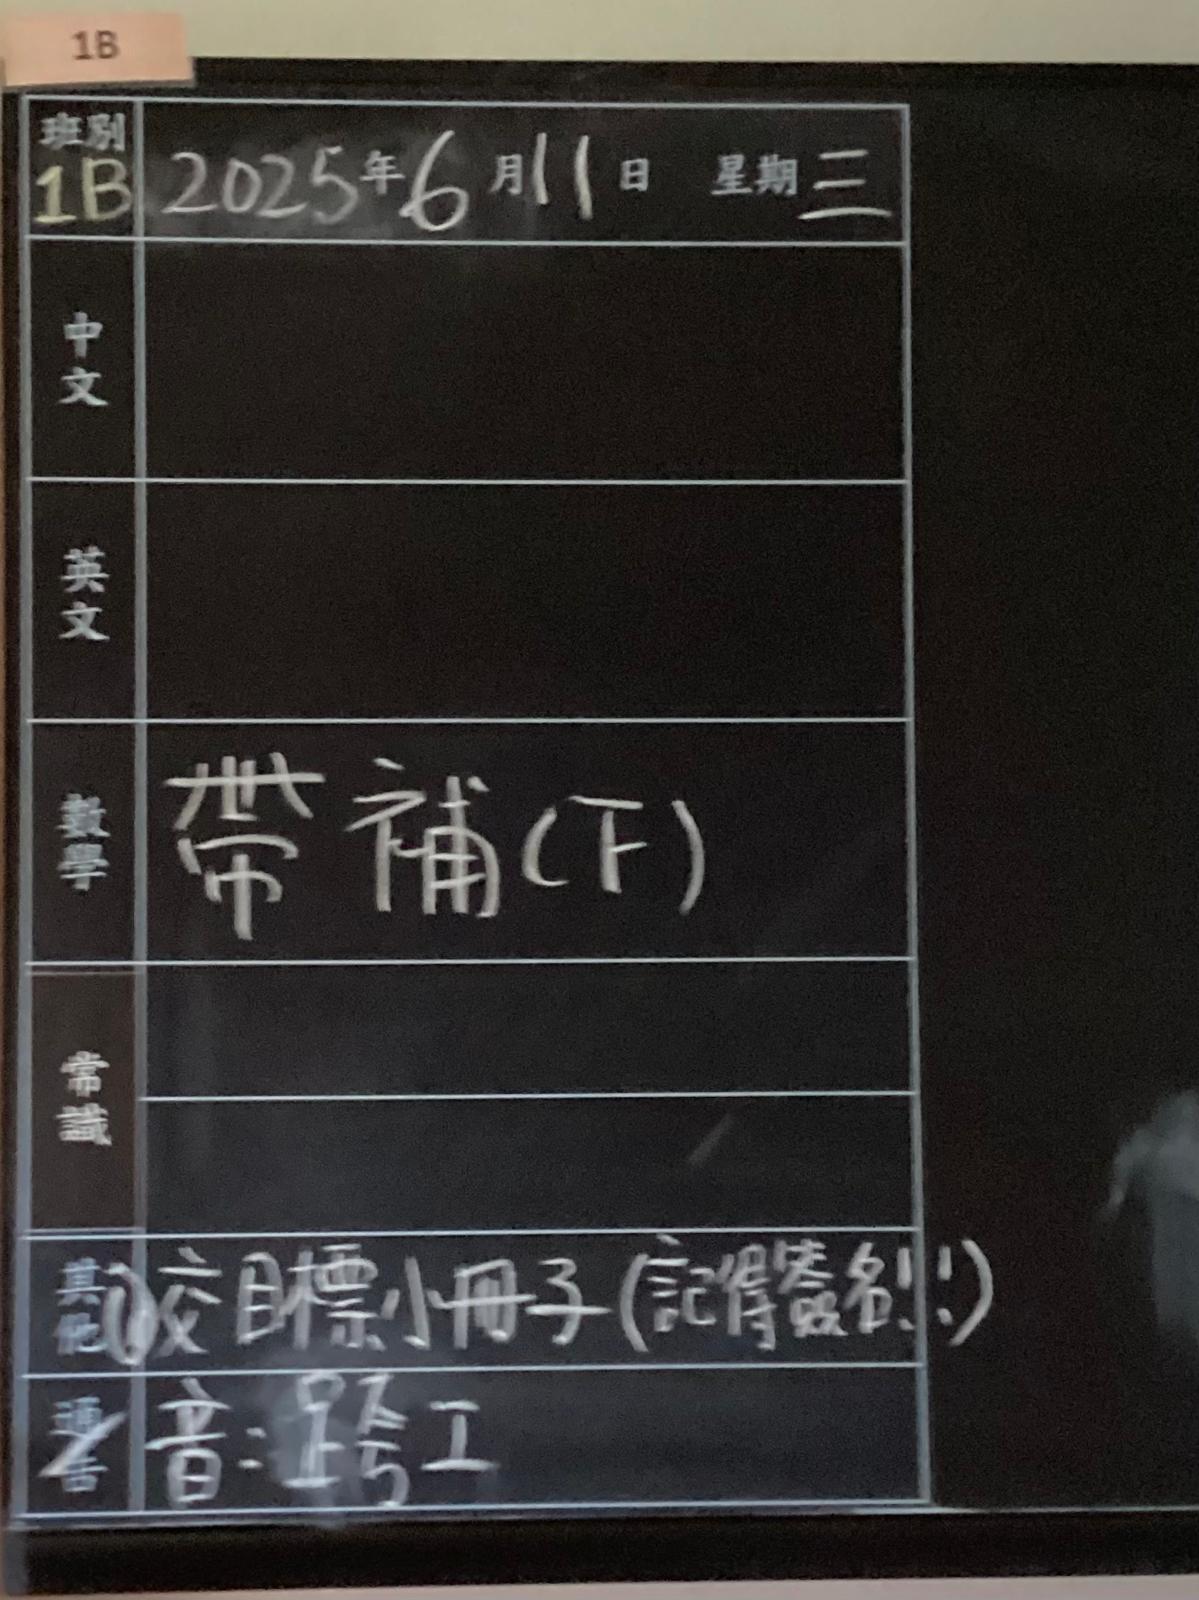 1B
班別
1B 2025年6月11日 星期三
中文
英文
數學 帶補(下)
常識
其他 ① 交目標小冊子(記得簽名!!!)
通告 音:跨工